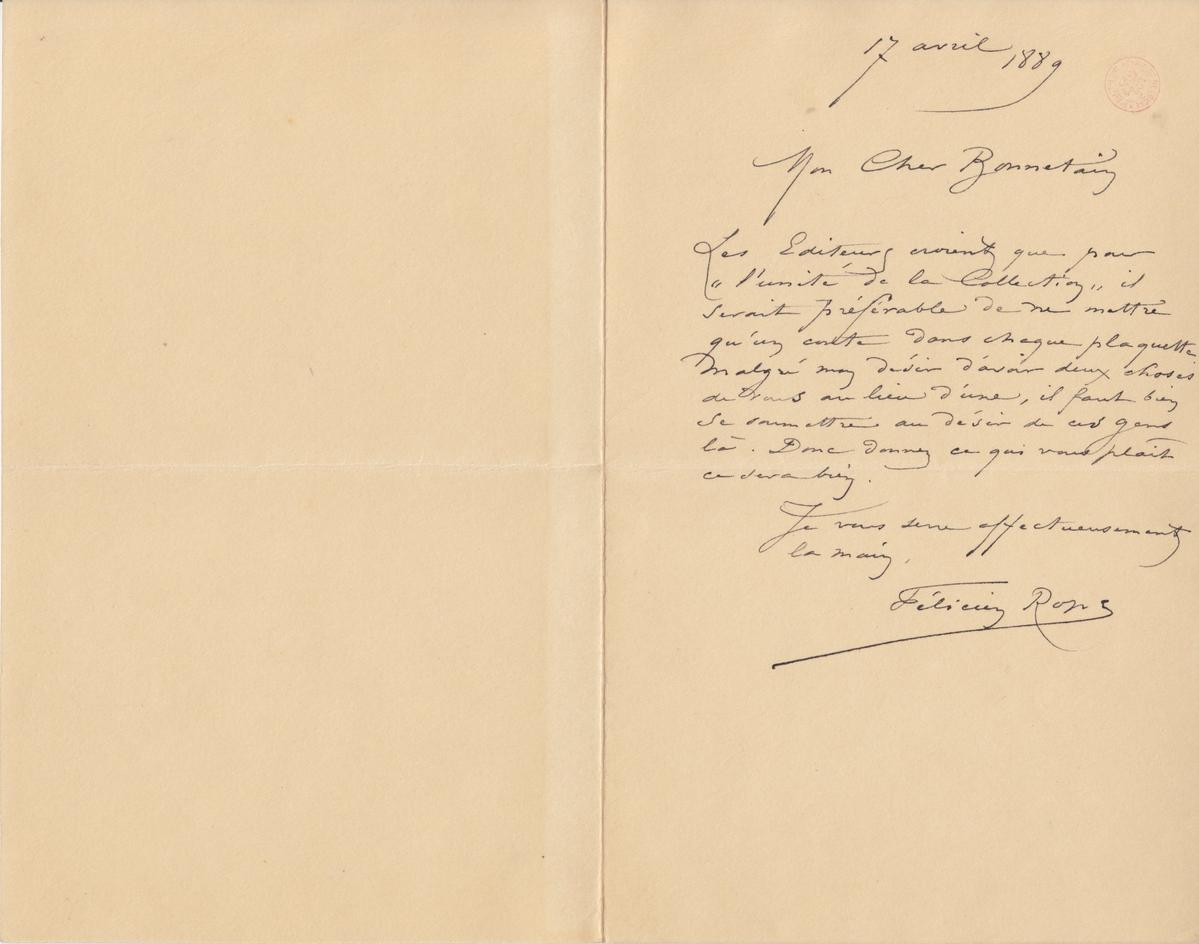 17 avril 1889
Mon Cher Bonnetain
Les Editeurs croient que pour
"l'unité de la Collection" il
serait préférable de ne mettre
qu'un conte dans chaque plaquette
Malgré mon désir d'avoir deux choses
de vous au lieu d'une, il faut bien
se soumettre au désir de ces gens
là. Donc donnez ce qui vous plait
ce sera bien.
Je vous serre affectueusement
la main,
Félicien Rops